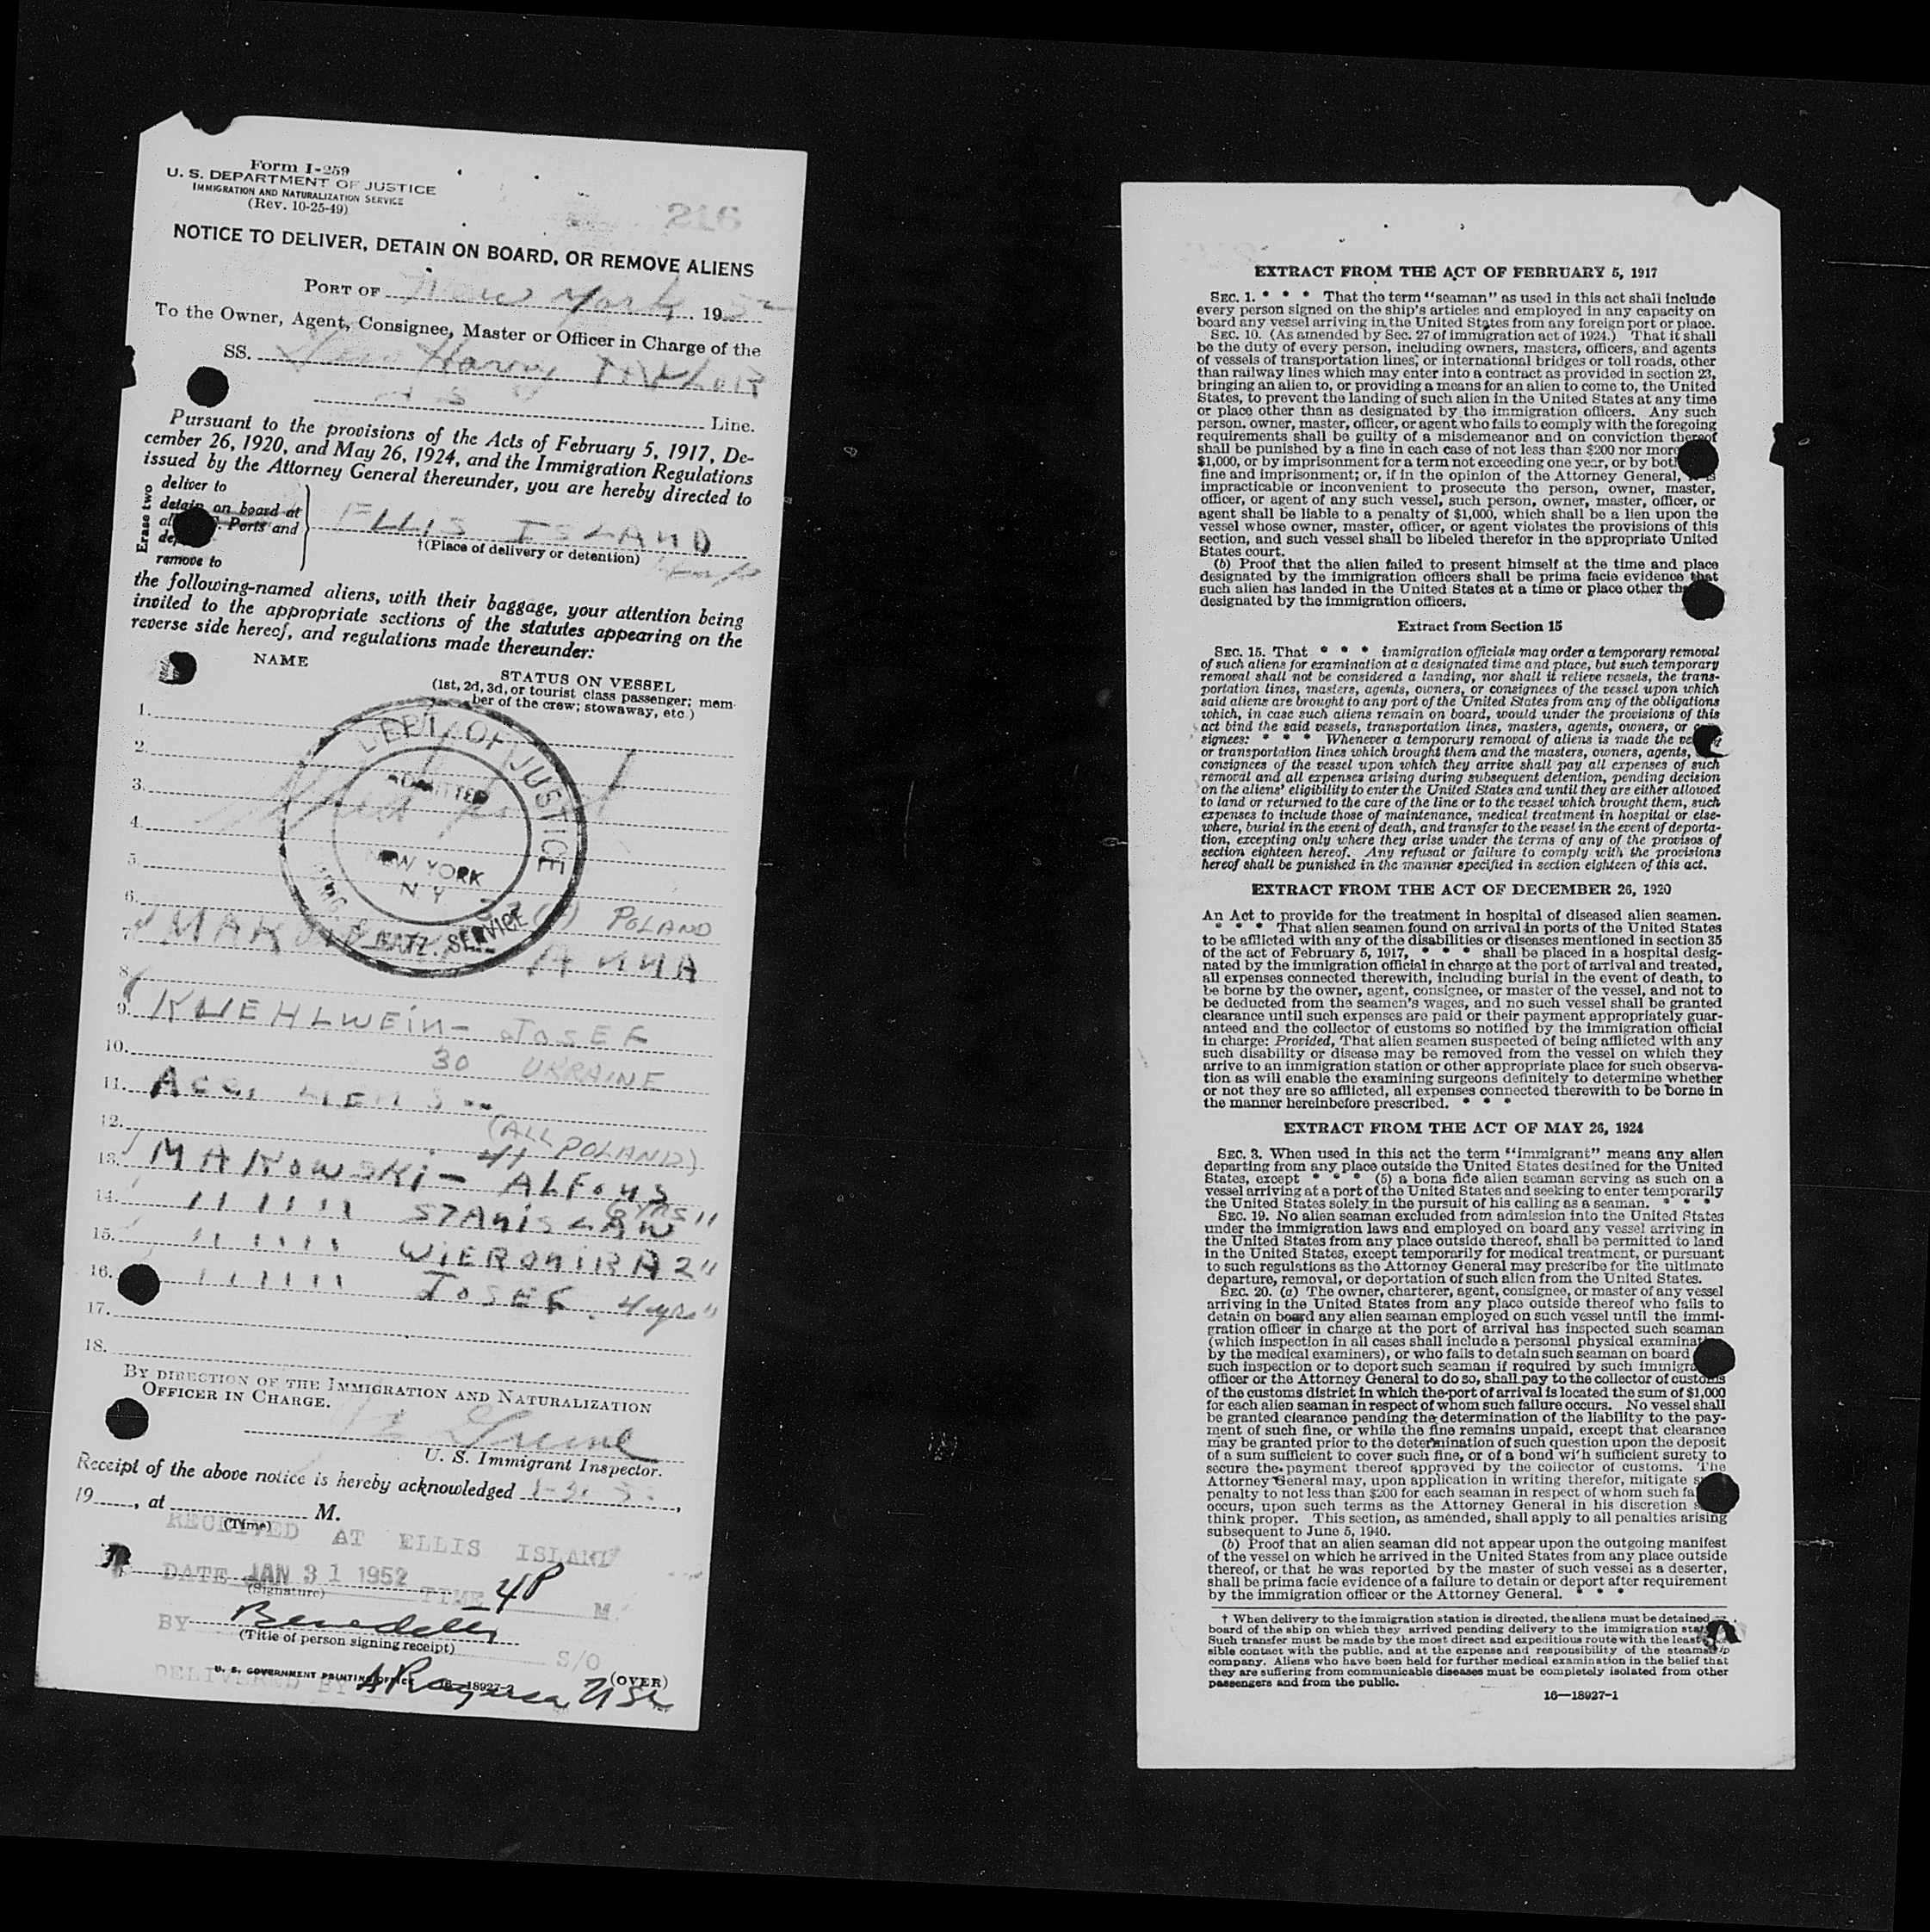 Form I-259
U. S. DEPARTMENT OF JUSTICE
IMMIGRATION AND NATURALIZATION SERVICE
(Rev. 10-25-49)
216
NOTICE TO DELIVER, DETAIN ON BOARD, OR REMOVE ALIENS
PORT OF New York 1952
To the Owner, Agent, Consignee, Master or Officer in Charge of the
SS. Gen Harry TAYLOR
Line.
Pursuant to the provisions of the Acts of February 5, 1917, De-
cember 26, 1920, and May 26, 1924, and the Immigration Regulations
issued by the Attorney General thereunder, you are hereby directed to
Erase two
deliver to
detain on board at
Ports and
remove to
ELLIS ISLAND
†(Place of delivery or detention)
the following-named aliens, with their baggage, your attention being
invited to the appropriate sections of the statutes appearing on the
reverse side hereof, and regulations made thereunder:
NAME
STATUS ON VESSEL
(1st, 2d, 3d, or tourist class passenger; mem-
ber of the crew; stowaway, etc.)
1.
2.
3.
4.
5.
6.
DEPT. OF JUSTICE
ADMITTED
NEW YORK
N Y
& NATZ. SERVICE
POLAND
7. ANNA
8.
9. KUEHLWEIN - JOSEF
10. 30 UKRAINE
11.
12. (ALL POLAND)
13. MAKOWSKI - ALFONS 41
14. " " " STANISLAW 8 YRS "
15. " " " 2 "
16. " " " JOSEF 4 yrs "
17.
18.
BY DIRECTION OF THE IMMIGRATION AND NATURALIZATION
OFFICER IN CHARGE.
U. S. Immigrant Inspector.
Receipt of the above notice is hereby acknowledged
19, at M.
(Time)
RECEIVED AT ELLIS ISLAND
DATE JAN 31 1952 TIME 4P M.
(Signature)
BY
(Title of person signing receipt)
S/O
U. S. GOVERNMENT PRINTING OFFICE 16—18927-1
(OVER)
DELIVERED BY
EXTRACT FROM THE ACT OF FEBRUARY 5, 1917
SEC. 1. * * * That the term "seaman" as used in this act shall include
every person signed on the ship's articles and employed in any capacity on
board any vessel arriving in the United States from any foreign port or place.
SEC. 10. (As amended by Sec. 27 of immigration act of 1924.) That it shall
be the duty of every person, including owners, masters, officers, and agents
of vessels of transportation lines, or international bridges or toll roads, other
than railway lines which may enter into a contract as provided in section 23,
bringing an alien to, or providing a means for an alien to come to, the United
States, to prevent the landing of such alien in the United States at any time
or place other than as designated by the immigration officers. Any such
person, owner, master, officer, or agent who fails to comply with the foregoing
requirements shall be guilty of a misdemeanor and on conviction thereof
shall be punished by a fine in each case of not less than $200 nor more
$1,000, or by imprisonment for a term not exceeding one year, or by both
fine and imprisonment; or, if in the opinion of the Attorney General, it is
impracticable or inconvenient to prosecute the person, owner, master,
officer, or agent of any such vessel, such person, owner, master, officer, or
agent shall be liable to a penalty of $1,000, which shall be a lien upon the
vessel whose owner, master, officer, or agent violates the provisions of this
section, and such vessel shall be libeled therefor in the appropriate United
States court.
(b) Proof that the alien failed to present himself at the time and place
designated by the immigration officers shall be prima facie evidence that
such alien has landed in the United States at a time or place other than
designated by the immigration officers.
Extract from Section 15
SEC. 15. That * * * immigration officials may order a temporary removal
of such aliens for examination at a designated time and place, but such temporary
removal shall not be considered a landing, nor shall it relieve vessels, the trans-
portation lines, masters, agents, owners, or consignees of the vessel upon which
said aliens are brought to any port of the United States from any of the obligations
which, in case such aliens remain on board, would under the provisions of this
act bind the said vessels, transportation lines, masters, agents, owners, or con-
signees: * * * Whenever a temporary removal of aliens is made the vessels
or transportation lines which brought them and the masters, owners, agents,
consignees of the vessel upon which they arrive shall pay all expenses of such
removal and all expenses arising during subsequent detention, pending decision
on the aliens' eligibility to enter the United States and until they are either allowed
to land or returned to the care of the line or to the vessel which brought them, such
expenses to include those of maintenance, medical treatment in hospital or else-
where, burial in the event of death, and transfer to the vessel in the event of deporta-
tion, excepting only where they arise under the terms of any of the provisos of
section eighteen hereof. Any refusal or failure to comply with the provisions
hereof shall be punished in the manner specified in section eighteen of this act.
EXTRACT FROM THE ACT OF DECEMBER 26, 1920
An Act to provide for the treatment in hospital of diseased alien seamen.
* * * That alien seamen found on arrival in ports of the United States
to be afflicted with any of the disabilities or diseases mentioned in section 35
of the act of February 5, 1917, * * * shall be placed in a hospital desig-
nated by the immigration official in charge at the port of arrival and treated,
all expenses connected therewith, including burial in the event of death, to
be borne by the owner, agent, consignee, or master of the vessel, and not to
be deducted from the seamen's wages, and no such vessel shall be granted
clearance until such expenses are paid or their payment appropriately guar-
anteed and the collector of customs so notified by the immigration official
in charge: Provided, That alien seamen suspected of being afflicted with any
such disability or disease may be removed from the vessel on which they
arrive to an immigration station or other appropriate place for such observa-
tion as will enable the examining surgeons definitely to determine whether
or not they are so afflicted, all expenses connected therewith to be borne in
the manner hereinbefore prescribed. * * *
EXTRACT FROM THE ACT OF MAY 26, 1924
SEC. 3. When used in this act the term "immigrant" means any alien
departing from any place outside the United States destined for the United
States, except * * * (5) a bona fide alien seaman serving as such on a
vessel arriving at a port of the United States and seeking to enter temporarily
the United States solely in the pursuit of his calling as a seaman. * * *
SEC. 19. No alien seaman excluded from admission into the United States
under the immigration laws and employed on board any vessel arriving in
the United States from any place outside thereof, shall be permitted to land
in the United States, except temporarily for medical treatment, or pursuant
to such regulations as the Attorney General may prescribe for the ultimate
departure, removal, or deportation of such alien from the United States.
SEC. 20. (a) The owner, charterer, agent, consignee, or master of any vessel
arriving in the United States from any place outside thereof who fails to
detain on board any alien seaman employed on such vessel until the immi-
gration officer in charge at the port of arrival has inspected such seaman
(which inspection in all cases shall include a personal physical examination
by the medical examiners), or who fails to detain such seaman on board
such inspection or to deport such seaman if required by such immigration
officer or the Attorney General to do so, shall pay to the collector of customs
of the customs district in which the port of arrival is located the sum of $1,000
for each alien seaman in respect of whom such failure occurs. No vessel shall
be granted clearance pending the determination of the liability to the pay-
ment of such fine, or while the fine remains unpaid, except that clearance
may be granted prior to the determination of such question upon the deposit
of a sum sufficient to cover such fine, or of a bond with sufficient surety to
secure the payment thereof approved by the collector of customs. The
Attorney General may, upon application in writing therefor, mitigate such
penalty to not less than $200 for each seaman in respect of whom such failure
occurs, upon such terms as the Attorney General in his discretion shall
think proper. This section, as amended, shall apply to all penalties arising
subsequent to June 5, 1940.
(b) Proof that an alien seaman did not appear upon the outgoing manifest
of the vessel on which he arrived in the United States from any place outside
thereof, or that he was reported by the master of such vessel as a deserter,
shall be prima facie evidence of a failure to detain or deport after requirement
by the immigration officer or the Attorney General. * * *
† When delivery to the immigration station is directed, the aliens must be detained
board of the ship on which they arrived pending delivery to the immigration station.
Such transfer must be made by the most direct and expeditious route with the least
sible contact with the public, and at the expense and responsibility of the steamship
company. Aliens who have been held for further medical examination in the belief that
they are suffering from communicable diseases must be completely isolated from other
passengers and from the public.
16—18927-1